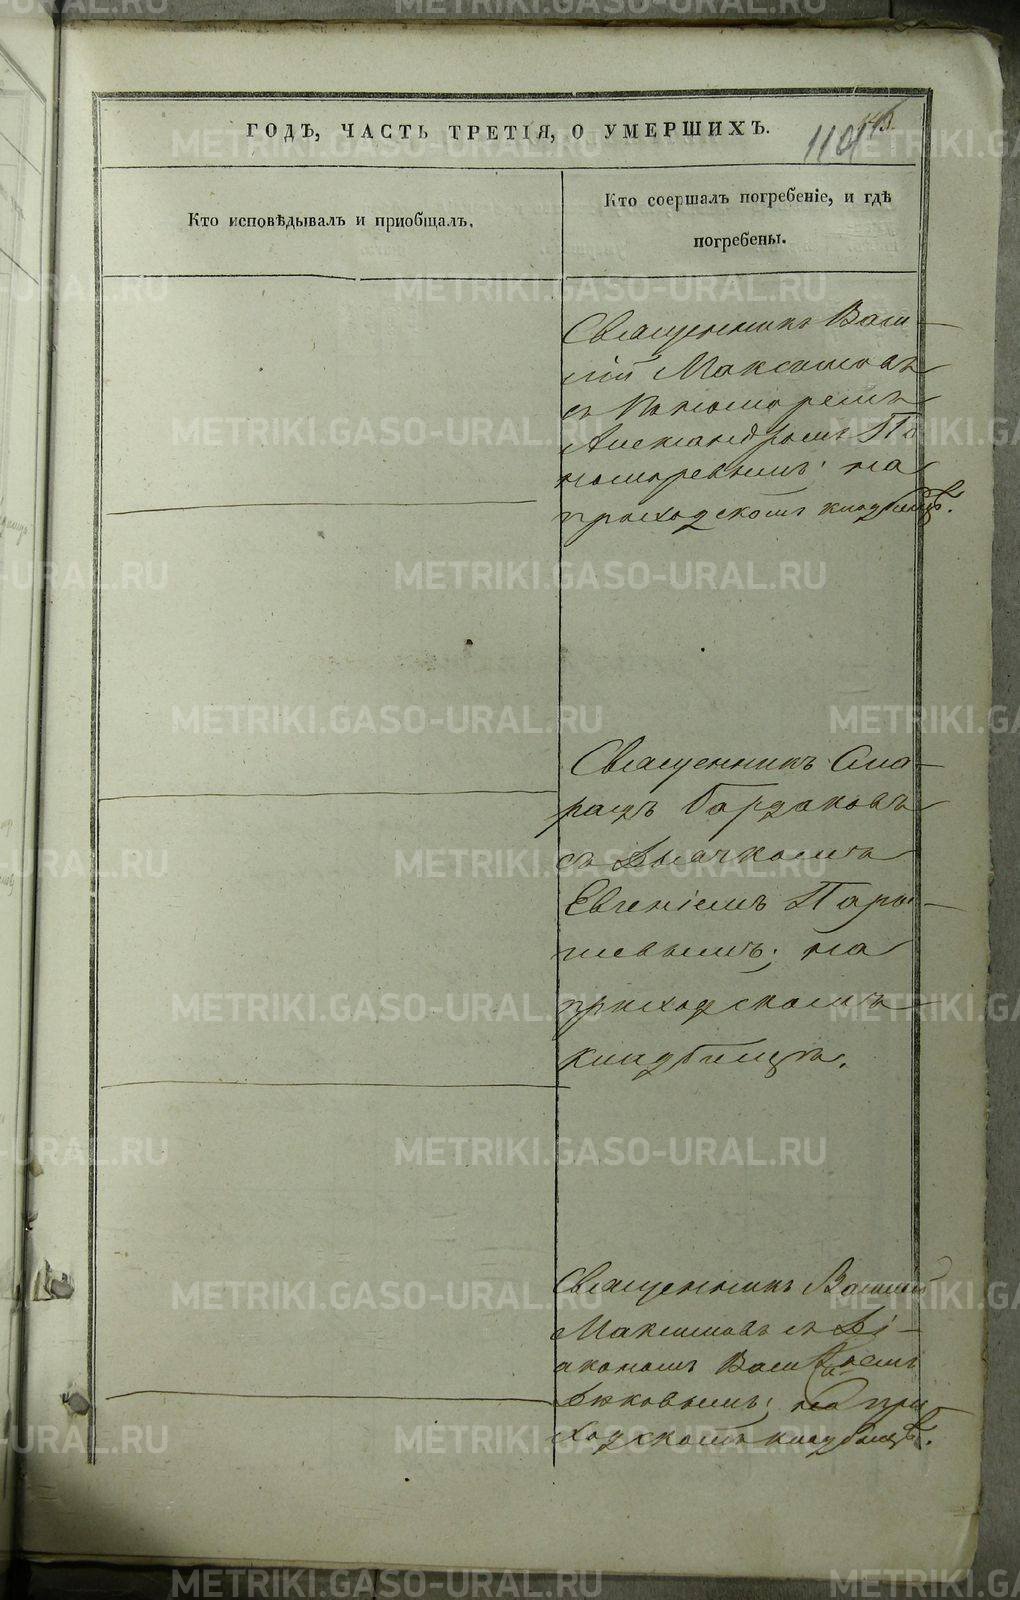 ГОДЪ, ЧАСТЬ ТРЕТІЯ, О УМЕРШИХЪ.
Кто исповѣдывалъ и приобщалъ.
Кто соершалъ погребеніе, и гдѣ
погребены.
Священникъ Васи-
лій Максимовъ
съ Пономаремъ
Александромъ По
номаревымъ; на
приходскомъ кладбищѣ.
Священникъ
Бардаковъ
съ Дьячкомъ
Евгеніемъ Пары-
шевымъ; на
приходскомъ
кладбищѣ.
Священникъ Василій
Максимовъ съ Ді-
акономъ Василіемъ
на при
ходскомъ кладбищѣ.
METRIKI.GASO-URAL.RU